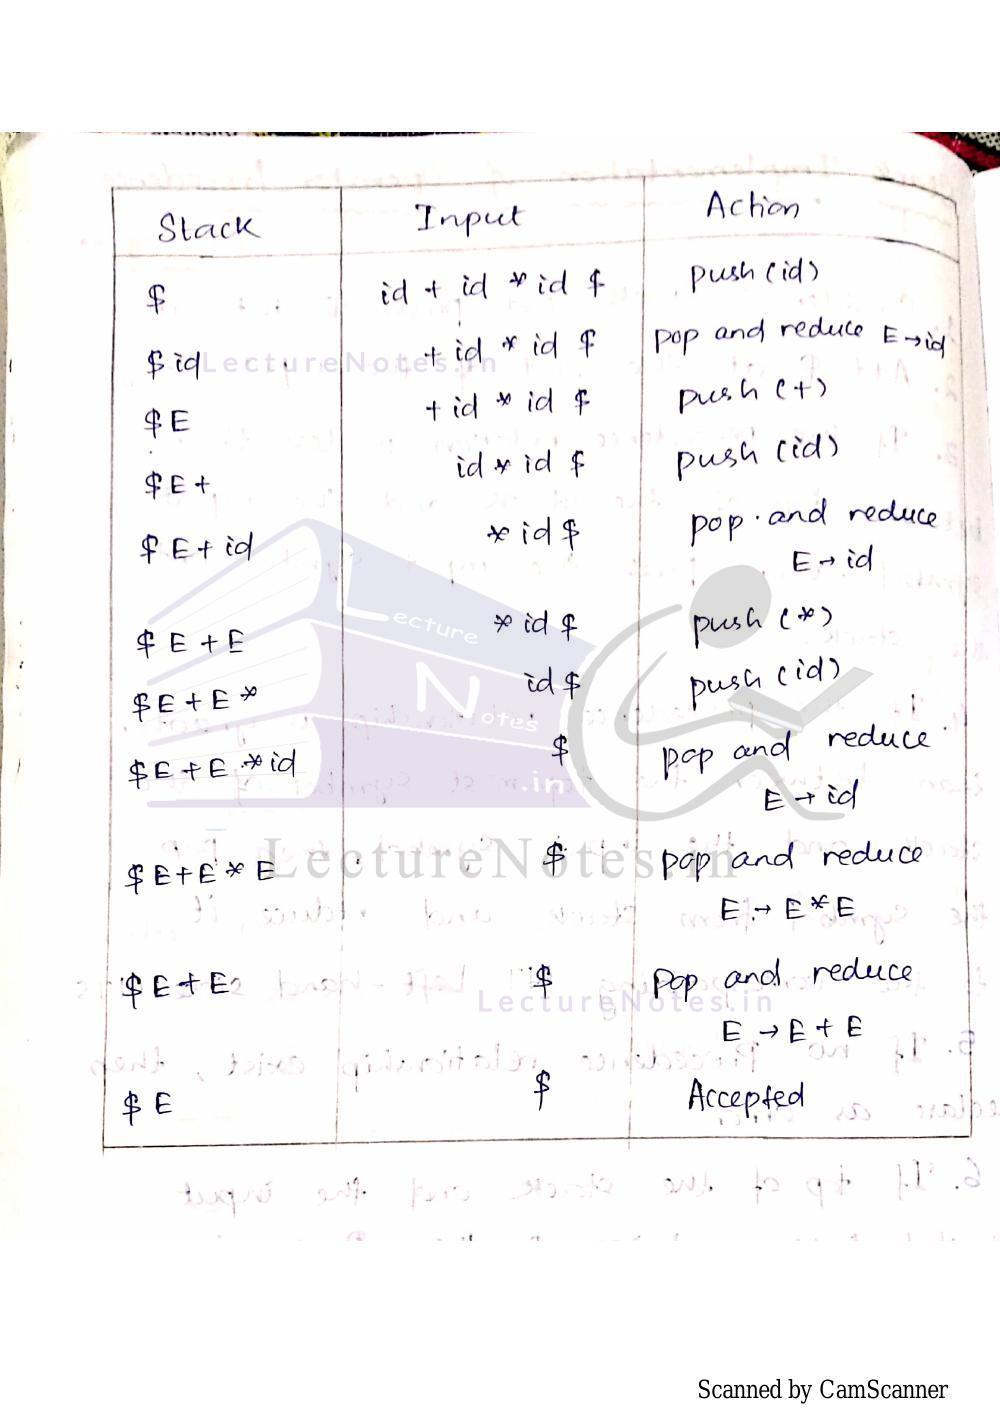 Stack Input Action
$ id + id * id $ push (id)
$ id + id * id $ pop and reduce E → id
$ E + id * id $ push (+)
$ E + id * id $ push (id)
$ E + id * id $ pop and reduce
E → id
$ E + E * id $ push (*)
$ E + E * id $ push (id)
$ E + E * id $ pop and reduce
E → id
$ E + E * E $ pop and reduce
E → E * E
$ E + E $ Pop and reduce
E → E + E
$ E $ Accepted
LectureNotes.in
Lecture
Notes
.in
LectureNotes.in
LectureNotes.in
Scanned by CamScanner